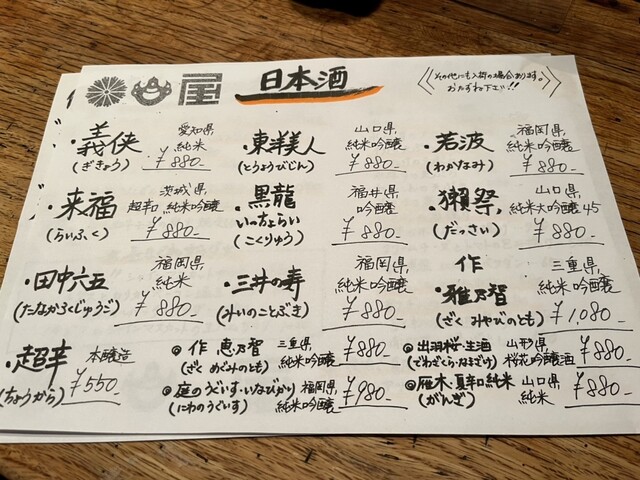 屋 日本酒
その他にも入荷の場合あります。
おたずね下さい!!
・義侠 愛知県
純米
(ぎきょう) ¥880-
・東洋美人 山口県
純米吟醸
(とうようびじん) ¥880-
・若波 福岡県
純米吟醸
(わかなみ) ¥880-
・来福 茨城県
超辛口 純米吟醸
(らいふく) ¥880-
・黒龍 福井県
いっちょらい 吟醸
(こくりゅう) ¥880-
・獺祭 山口県
純米大吟醸45
(だっさい) ¥880-
・田中六五 福岡県
純米
(たなかろくじゅうご) ¥880-
・三井の寿 福岡県
純米吟醸
(みいのことぶき) ¥880-
作 三重県
・雅乃智 純米吟醸
(ざく みやびのとも) ¥1,080-
・超辛 本醸造
(ちょうから) ¥550-
◎ 作 恵乃智 三重県
(ざく めぐみのとも) 純米吟醸 ¥880-
◎ 庭のうぐいす・いなびかり 福岡県
(にわのうぐいす) 純米吟醸 ¥980-
◎ 出羽桜・生酒 山形県
(でわざくら・なまざけ) 桜花吟醸酒 ¥880-
◎ 雁木・夏辛口純米 山口県
(がんぎ) 純米 ¥880-